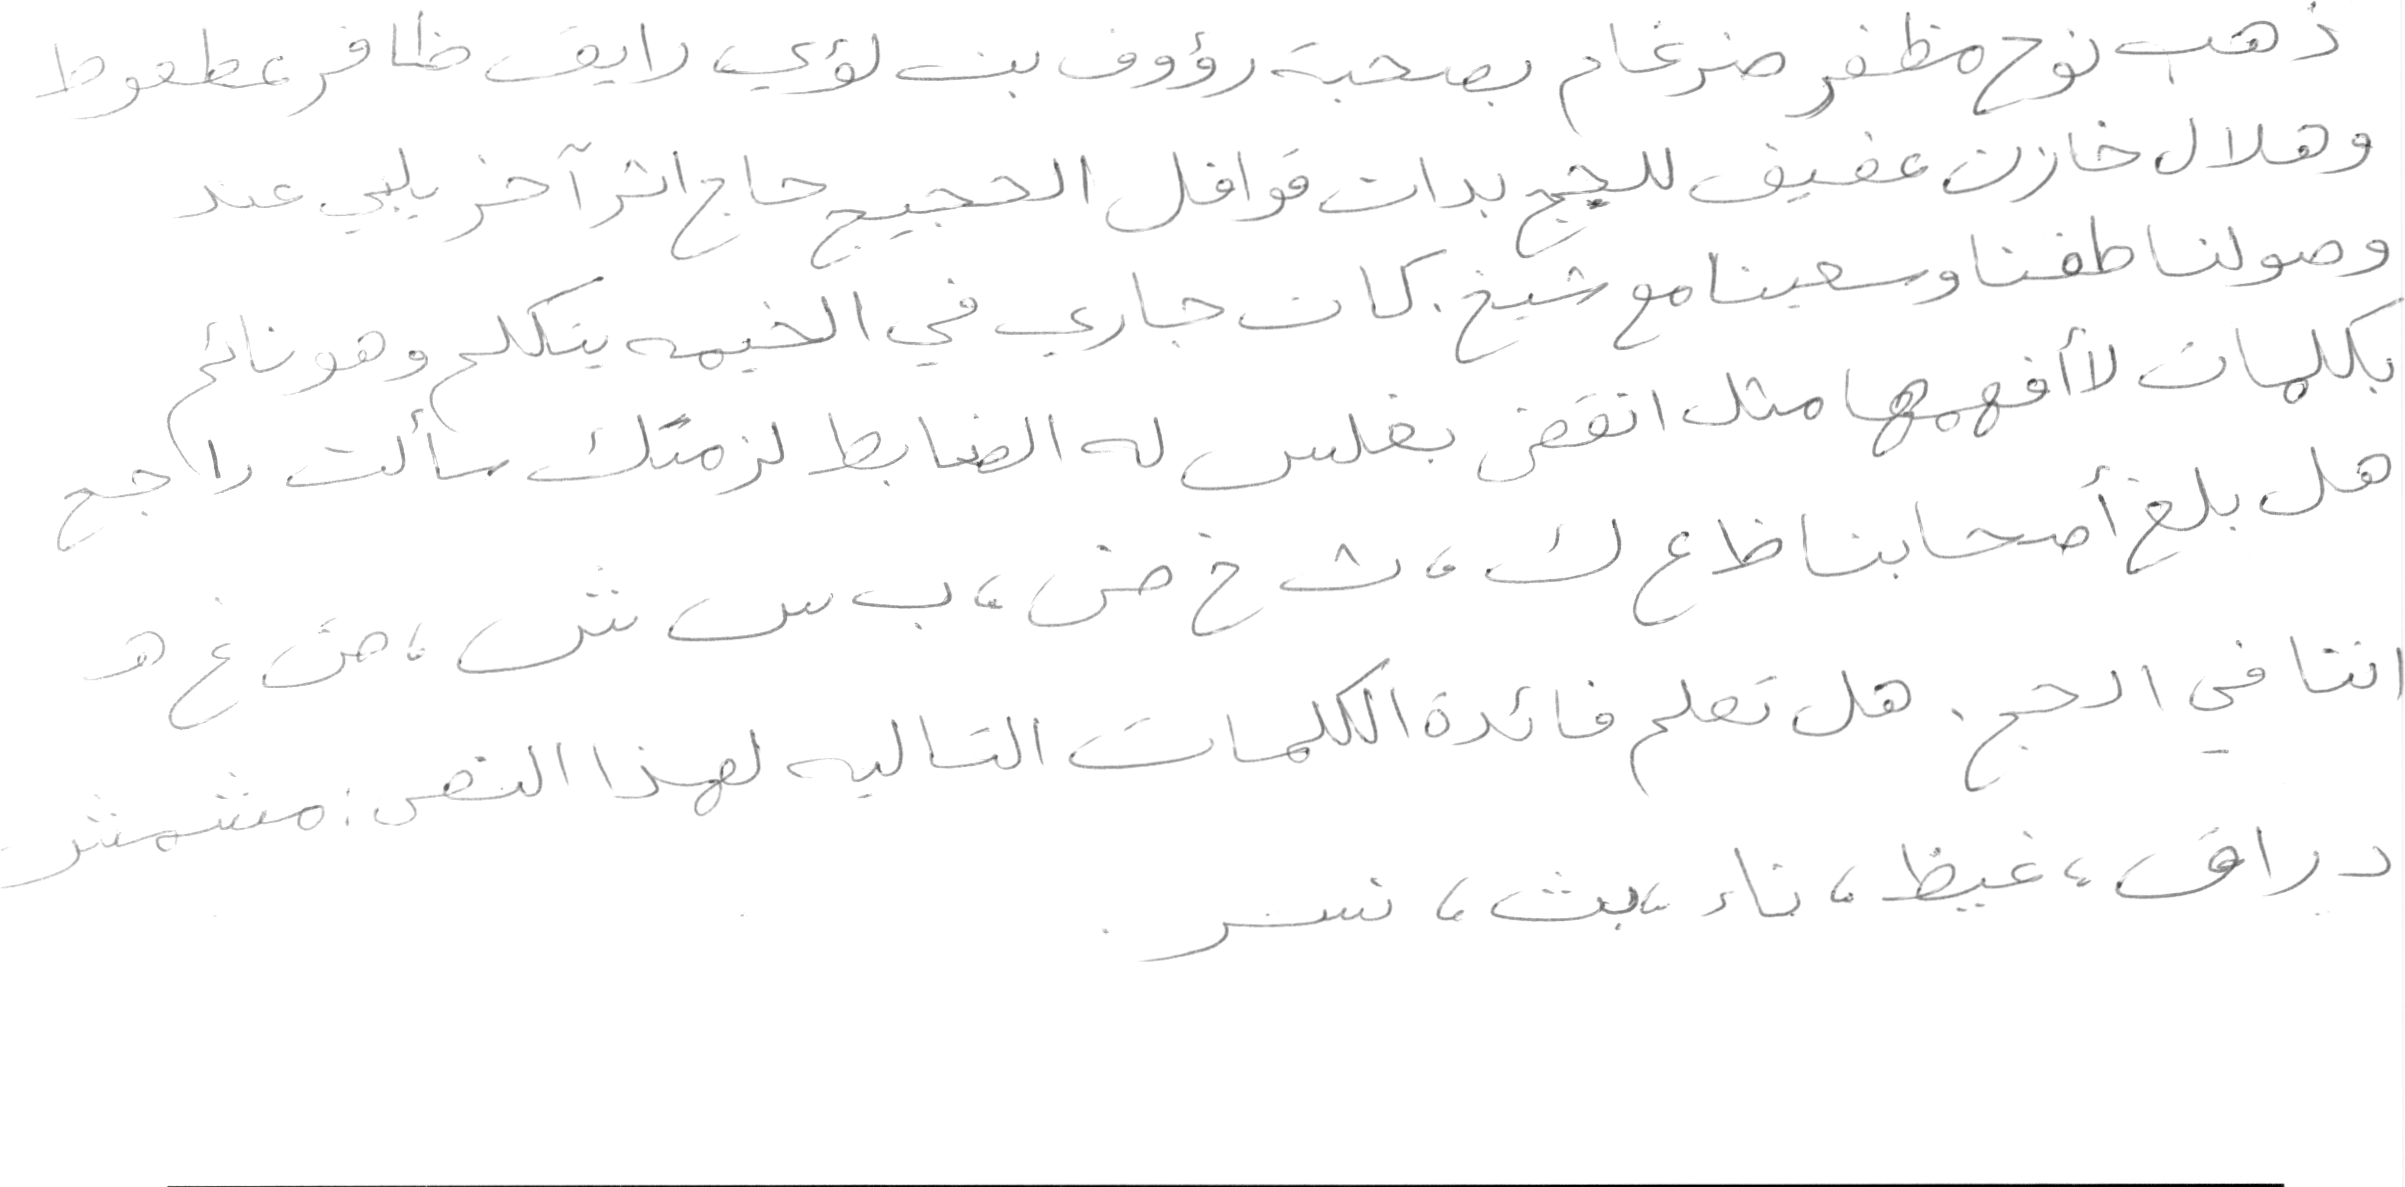 ذهب نوح مظفر ضرغام بصحبة رؤوف بن لؤي، رايق ظافر عطعوط
وهلال خازن عفيف للحج بدات قوافل الحجيج حاج اثر آخر يلبي عند
وصولنا طفنا وسعينا مع شيخ. كان جاري في الخيمه يتكلم وهو نائم
بكلمات لا أفهمها مثل انقض بغلس له الضابط لزمتك سألت راجح
هل بلغ أصحابنا ظ ع ك، ث خ ض، ب س ش، ض غ ه
انتا في الحج. هل تعلم فائدة الكلمات التاليه لهذا النص: مشمش
دراق، غيظ، ناء، بث، نسر.